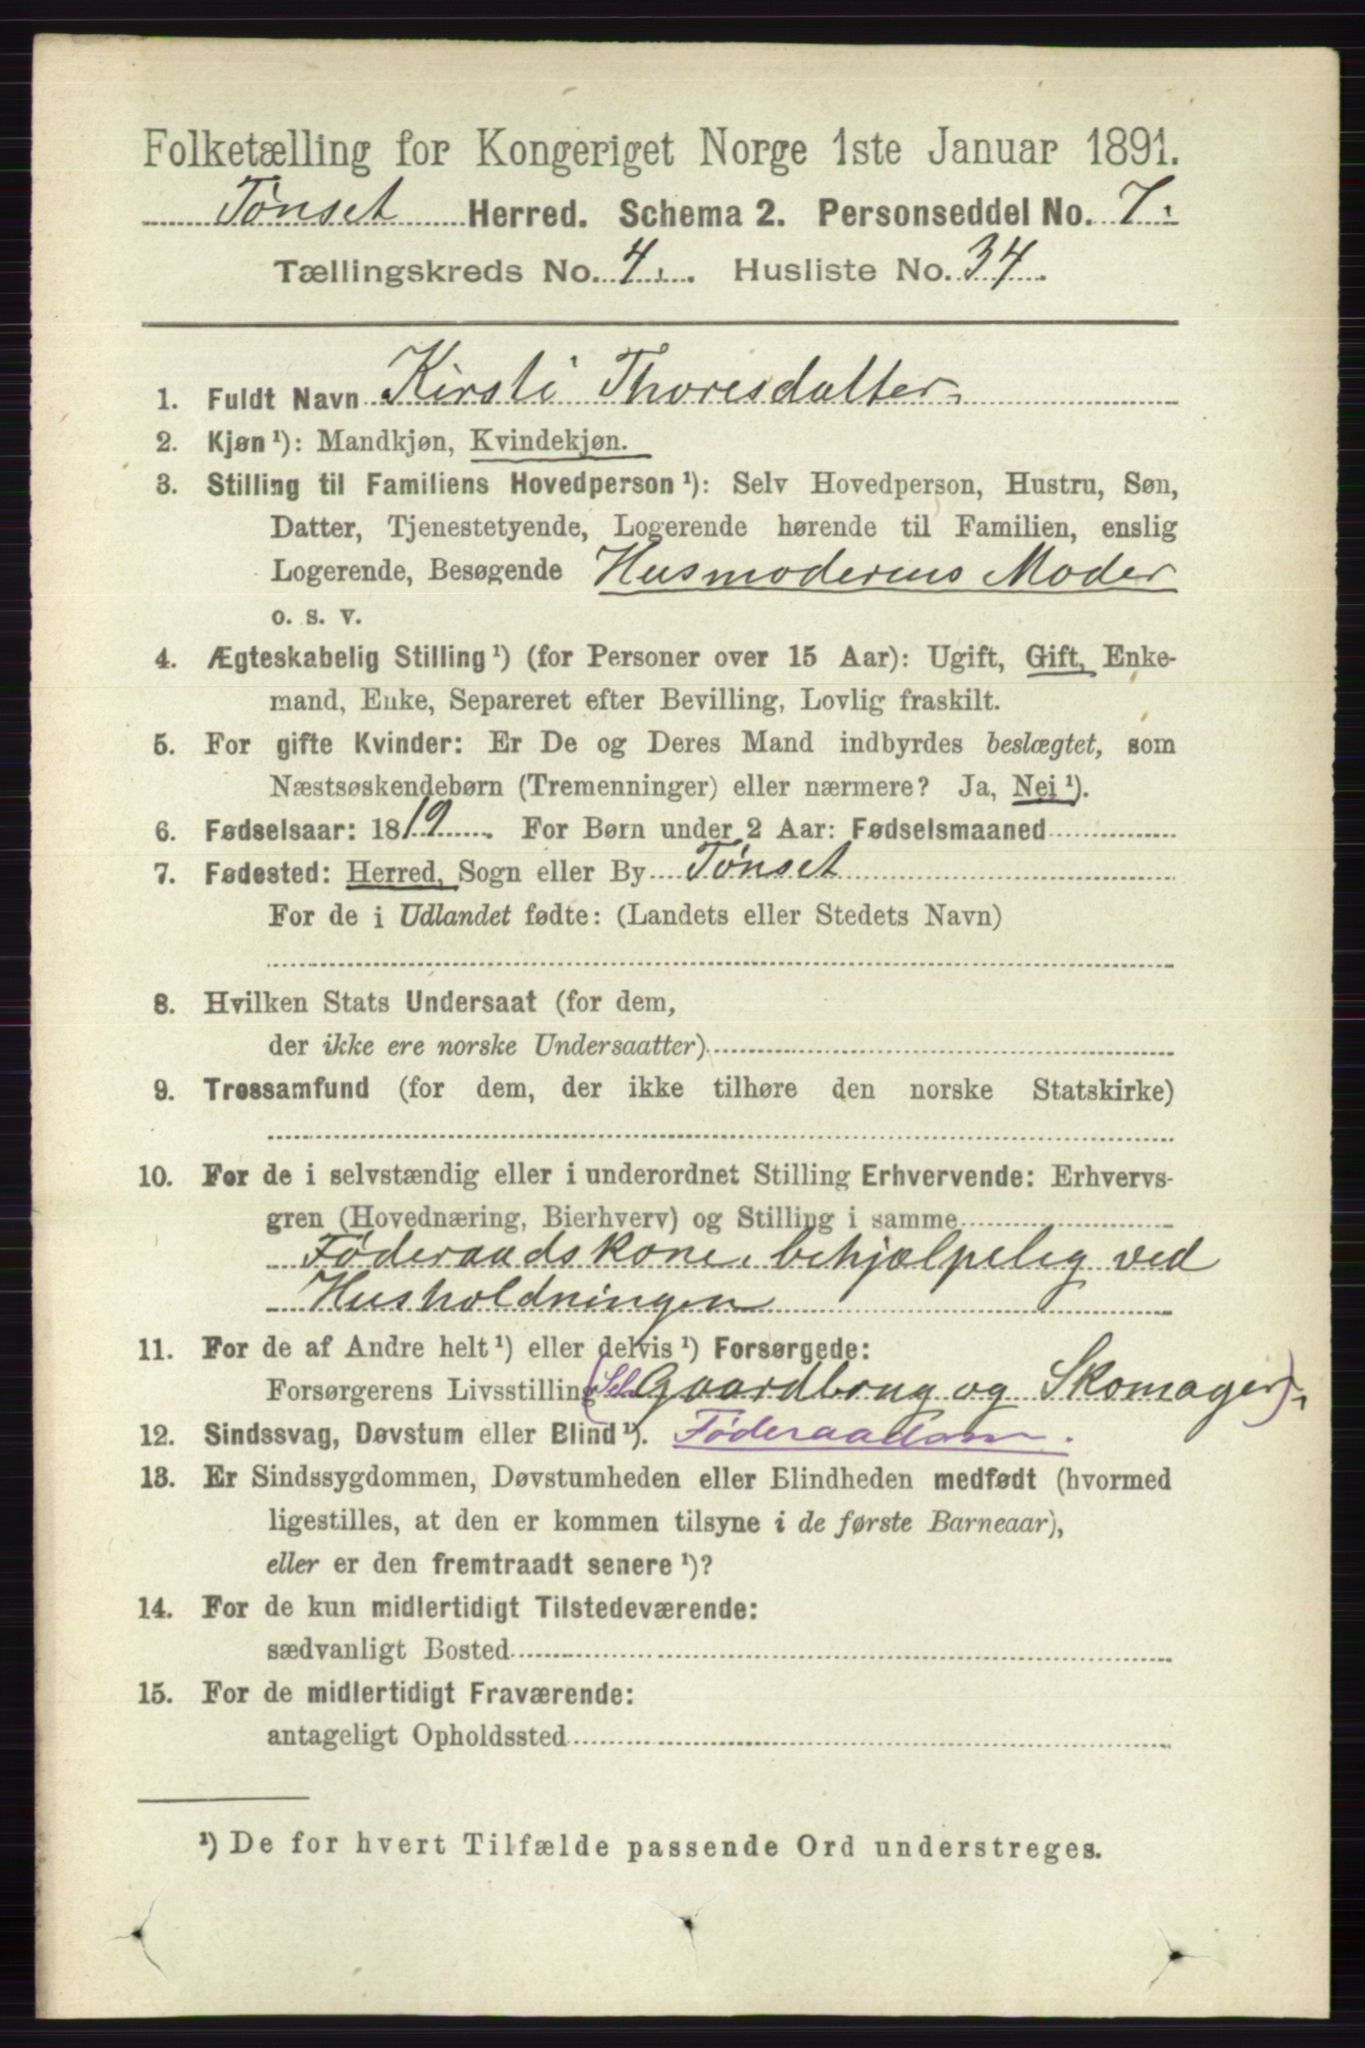 Folketælling for Kongeriget Norge 1ste Januar 1891.
Tønset Herred. Schema 2. Personseddel No. 7.
Tællingskreds No. 4. Husliste No. 34.
1. Fuldt Navn Kirsti Thoresdatter
2. Kjøn¹): Mandkjøn, Kvindekjøn.
3. Stilling til Familiens Hovedperson¹): Selv Hovedperson, Hustru, Søn,
Datter, Tjenestetyende, Logerende hørende til Familien, enslig
Logerende, Besøgende Husmoderens Moder
o. s. v.
4. Ægteskabelig Stilling¹) (for Personer over 15 Aar): Ugift, Gift, Enke-
mand, Enke, Separeret efter Bevilling, Lovlig fraskilt.
5. For gifte Kvinder: Er De og Deres Mand indbyrdes beslægtet, som
Næstsøskendebørn (Tremenninger) eller nærmere? Ja, Nei¹).
6. Fødselsaar: 1819. For Børn under 2 Aar: Fødselsmaaned
7. Fødested: Herred, Sogn eller By Tønset
For de i Udlandet fødte: (Landets eller Stedets Navn)
8. Hvilken Stats Undersaat (for dem,
der ikke ere norske Undersaatter)
9. Trossamfund (for dem, der ikke tilhøre den norske Statskirke)
10. For de i selvstændig eller i underordnet Stilling Erhvervende: Erhvervs-
gren (Hovednæring, Bierhverv) og Stilling i samme
Føderaadskone, behjælpelig ved
Husholdningen
11. For de af Andre helt¹) eller delvis¹) Forsørgede:
Forsørgerens Livsstilling (Sel. Gaardbrug og Skomager)
12. Sindssvag, Døvstum eller Blind¹).
13. Er Sindssygdommen, Døvstumheden eller Blindheden medfødt (hvormed
ligestilles, at den er kommen tilsyne i de første Barneaar),
eller er den fremtraadt senere¹)?
14. For de kun midlertidigt Tilstedeværende:
sædvanligt Bosted
15. For de midlertidigt Fraværende:
antageligt Opholdssted
¹) De for hvert Tilfælde passende Ord understreges.